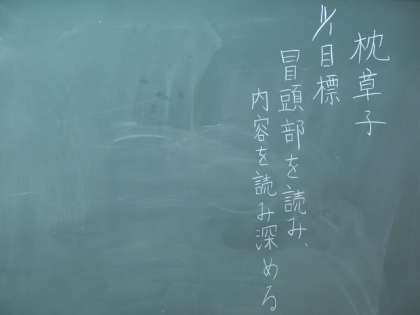 枕草子
目標
冒頭部を読み、
内容を読み深める